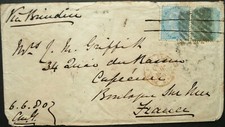 Via Brindisi
Mrs J. M. Griffith
34 Quai du Bassin
Capecure
Boulogne Sur Mer
France
6.6.80